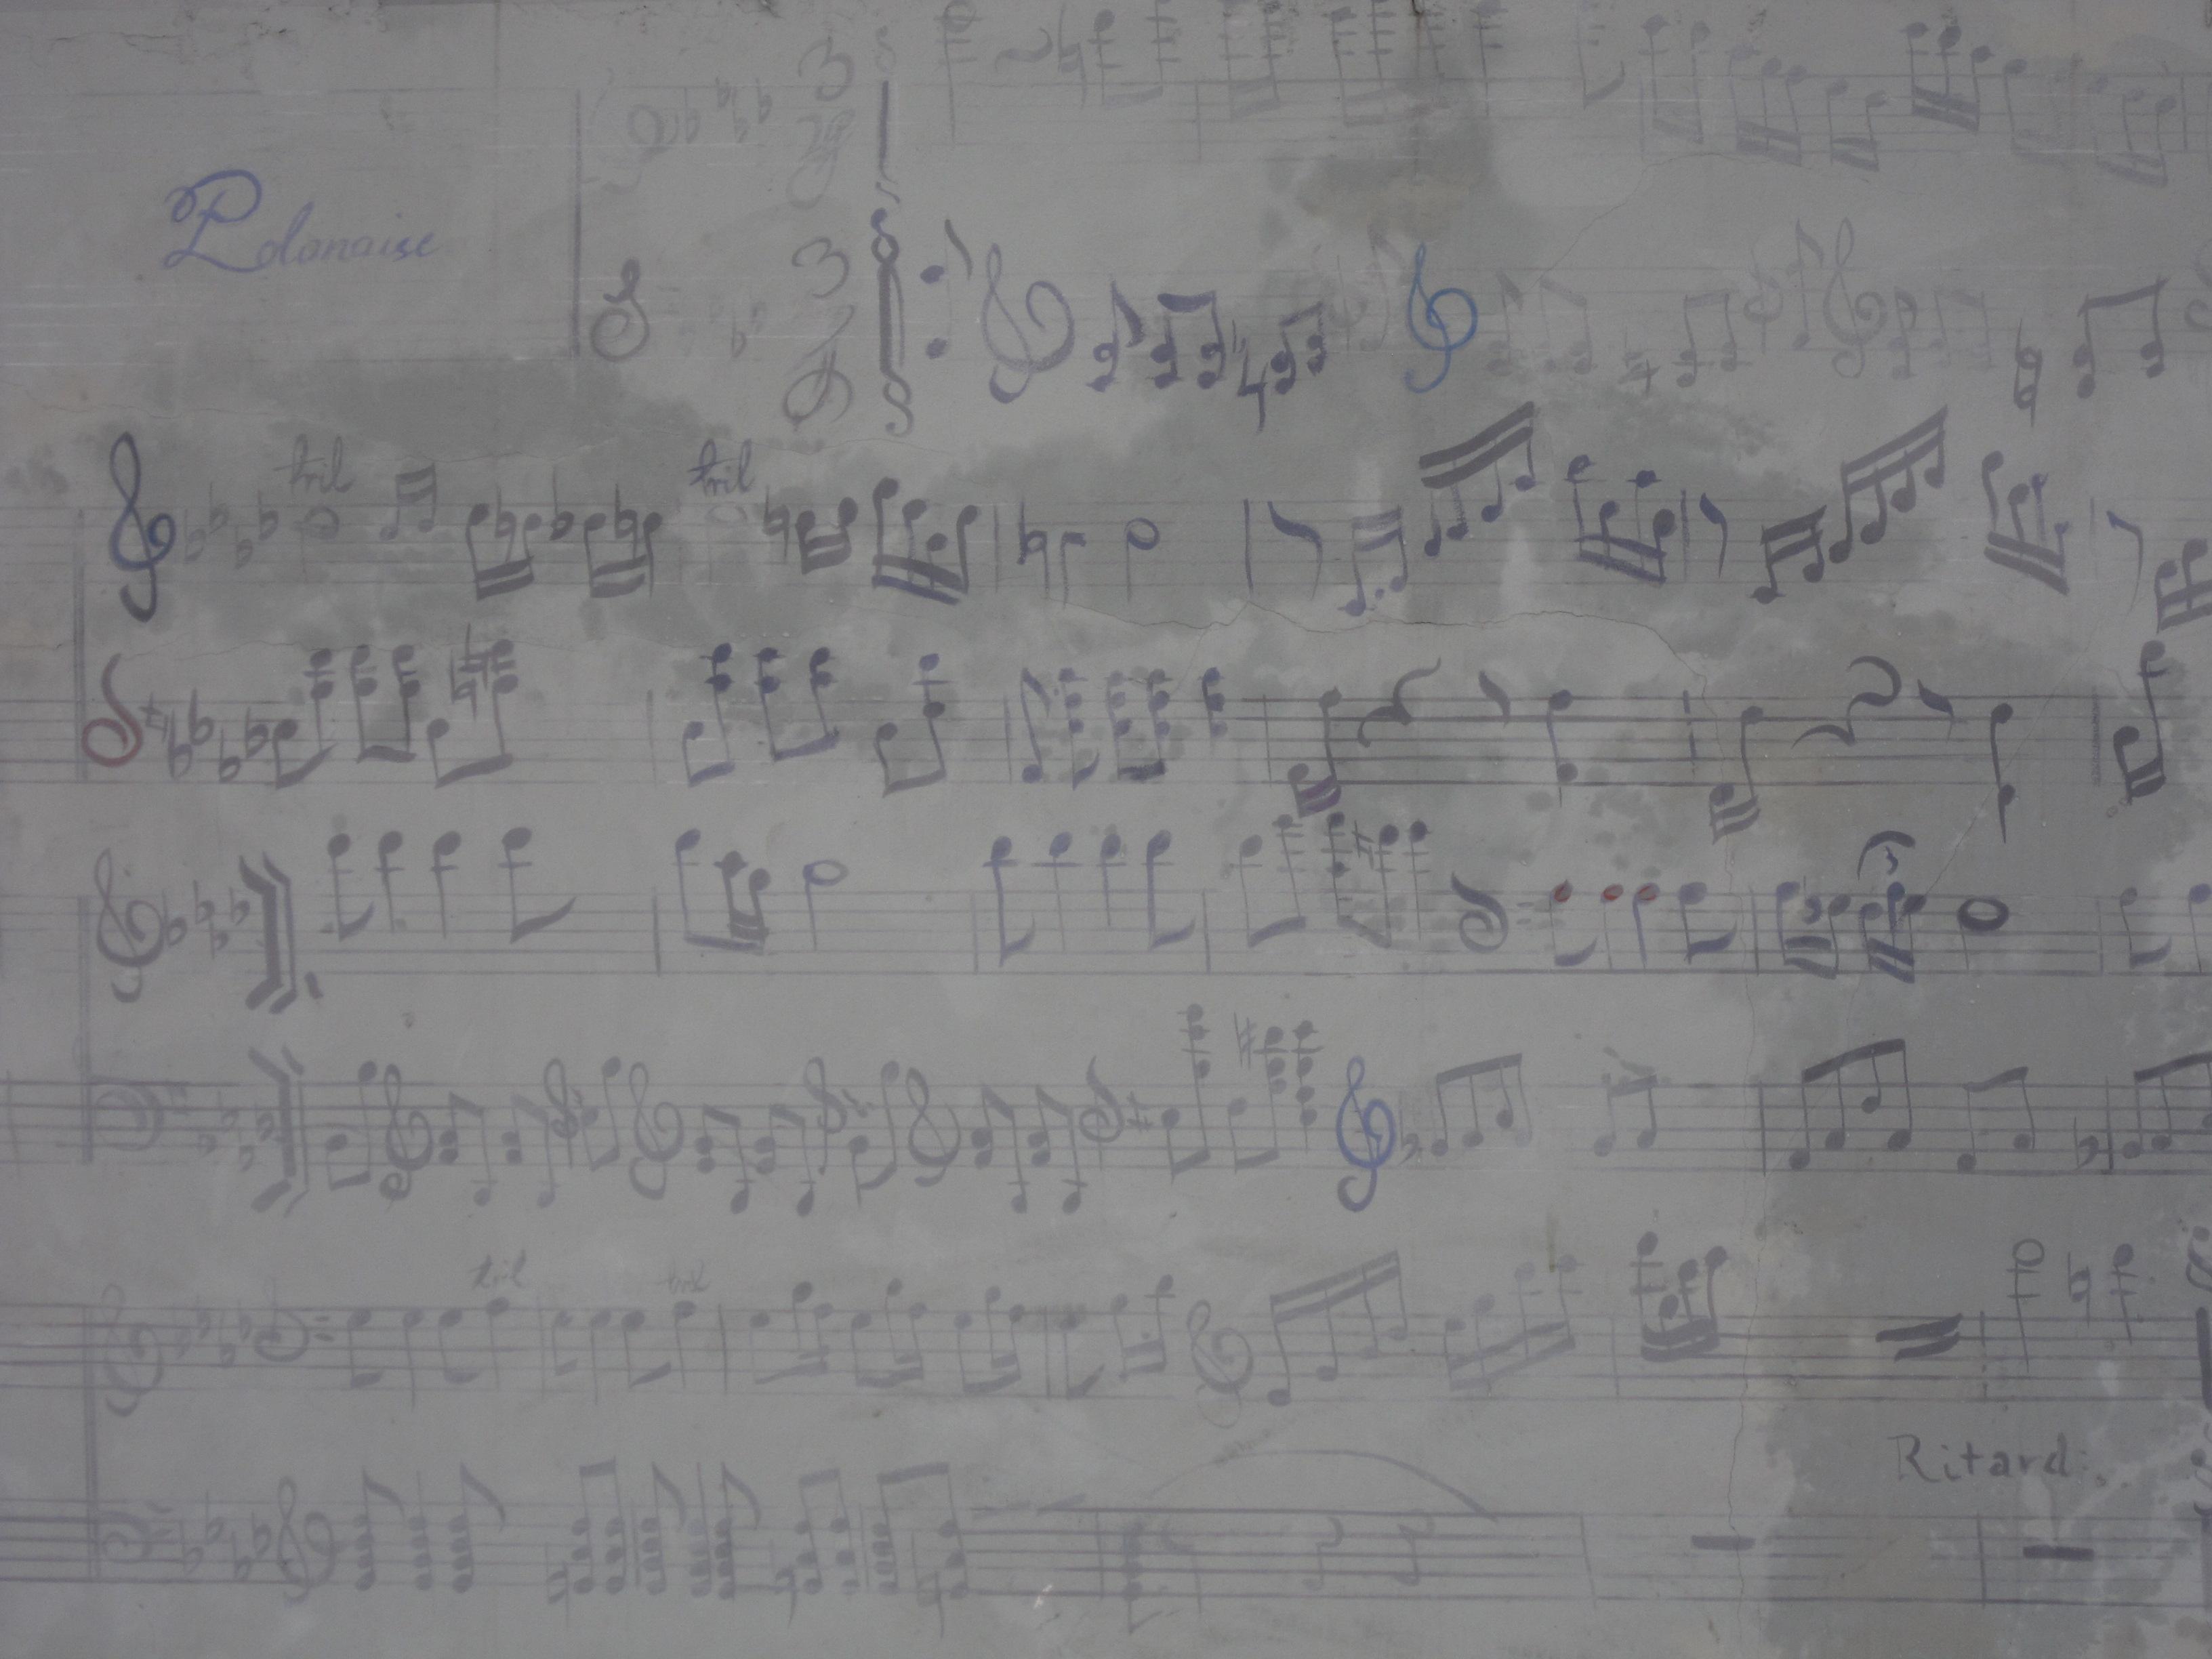 Polonaise
tril tril
tril tril
Ritard:.